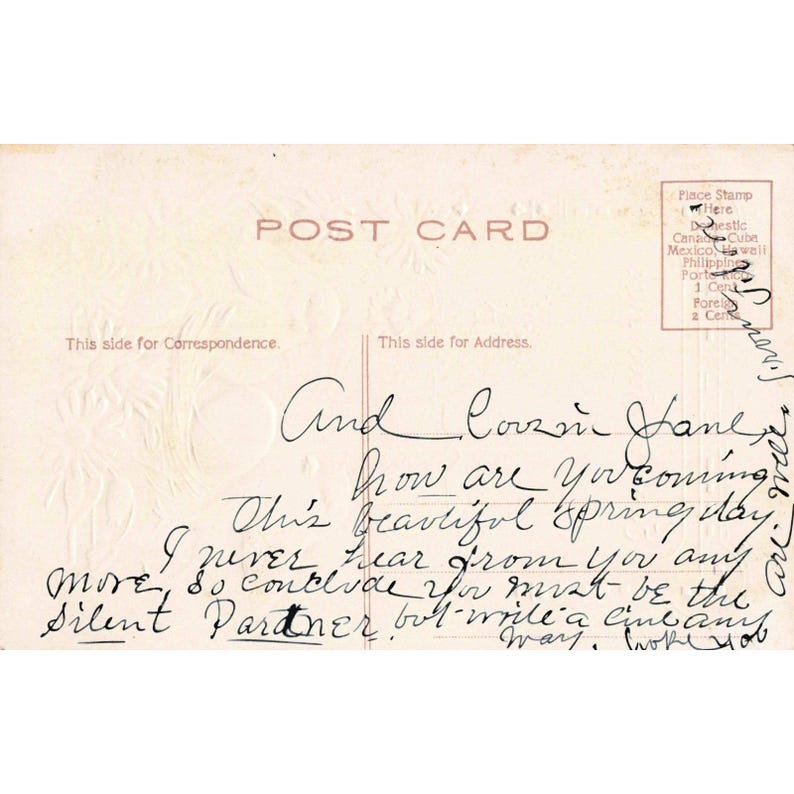 POST CARD
Place Stamp
Here
Domestic
Canada, Cuba
Mexico, Hawaii
Philippines
Porto Rico
1 Cent
Foreign
2 Cents
This side for Correspondence.
This side for Address.
And Cousin Jane,
how are you coming
this beautiful Spring day
I never hear from you any
more, so conclude you must be the
Silent Partner. but write a line any
way. hope you
are. well.
from